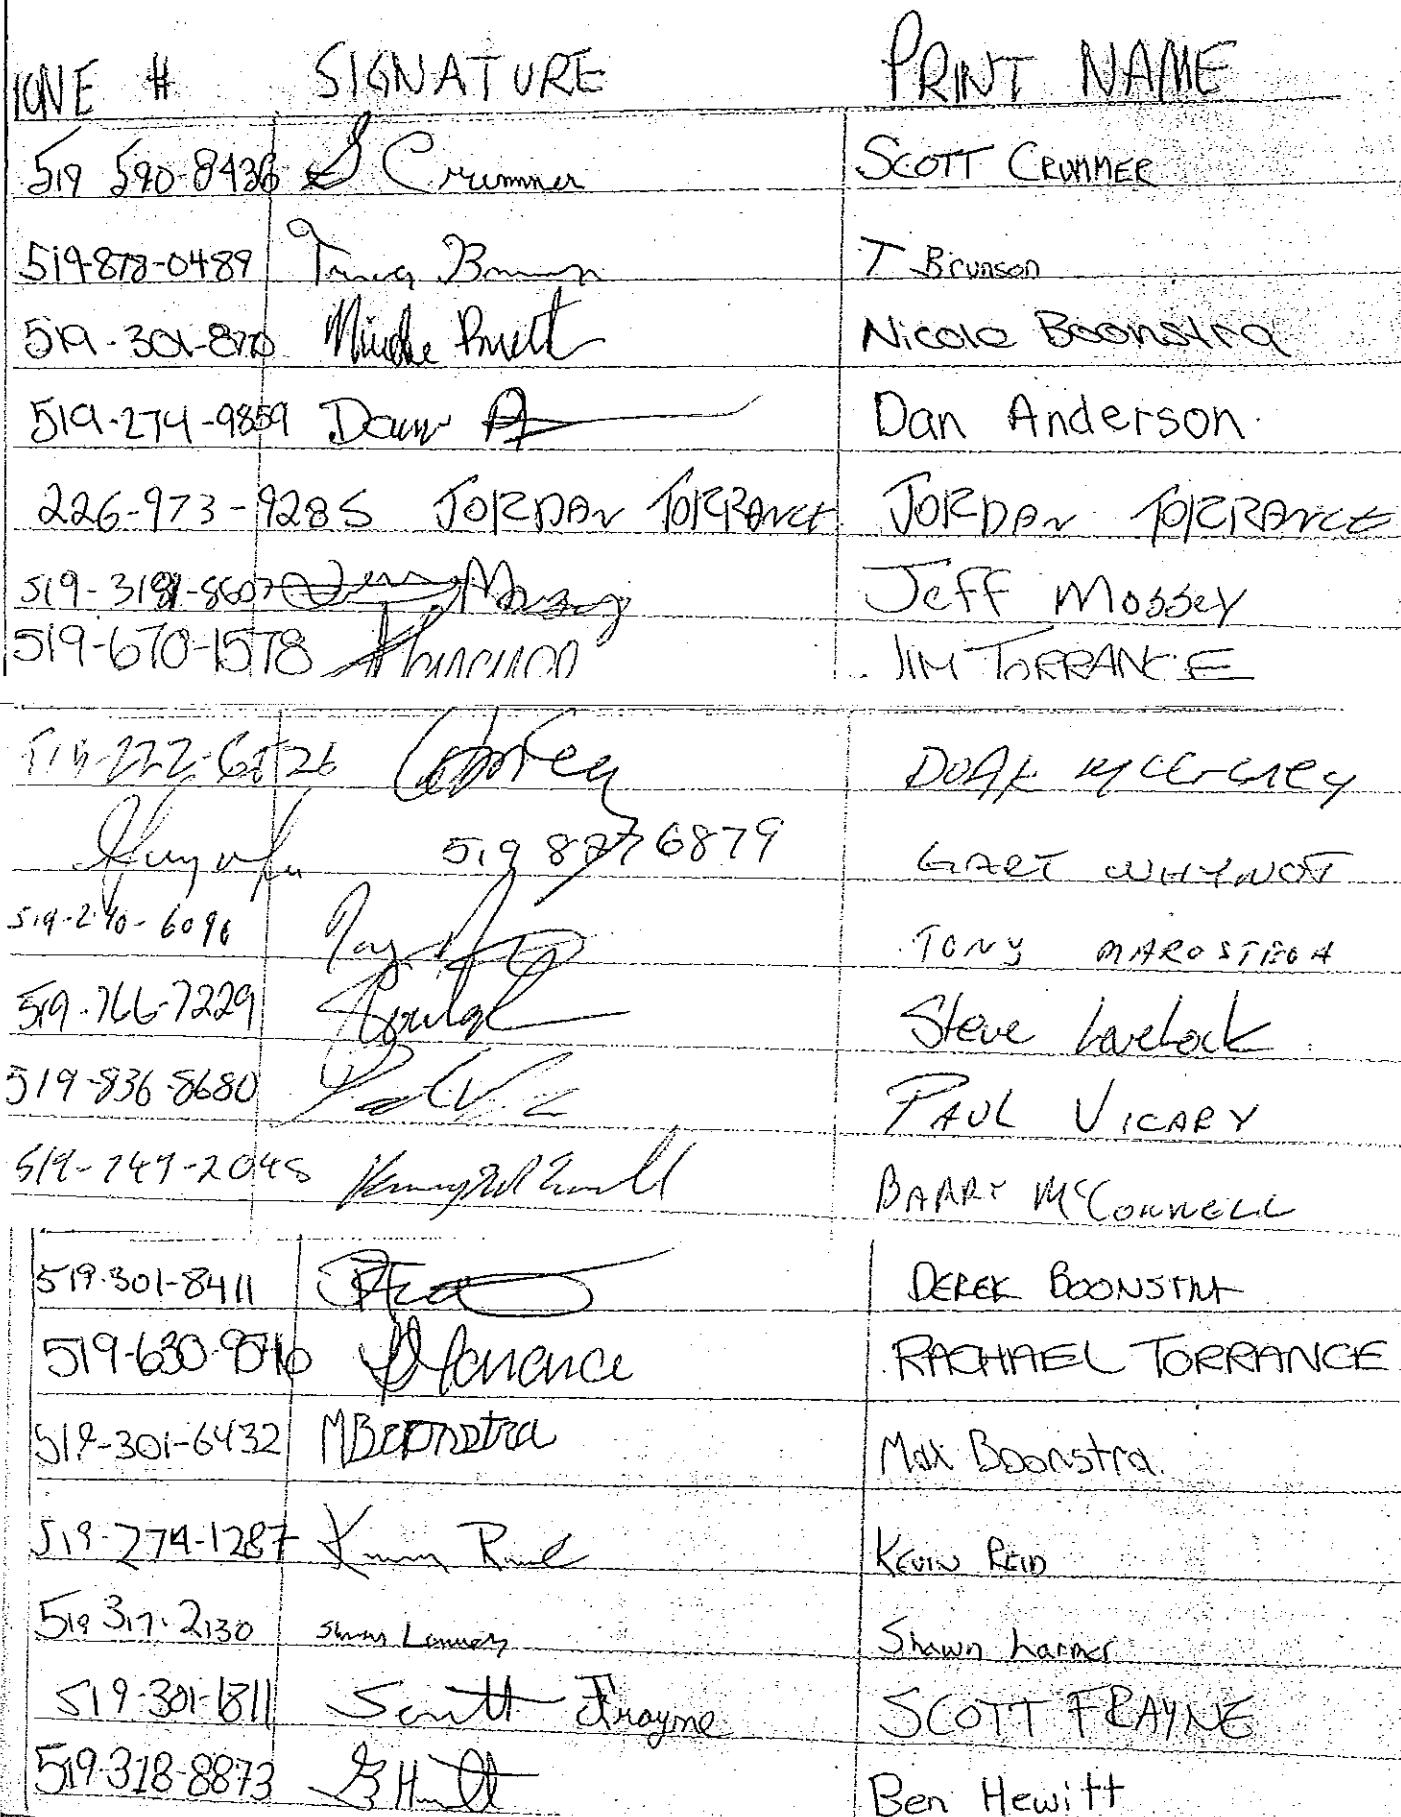 ONE # SIGNATURE PRINT NAME
519 590-8436 S Crummer SCOTT CRUMMER
519-878-0489 T Brunson
519-301-8770 Nicole Boonstra
519-274-9859 Dan Anderson
226-973-9285 JORDAN TORRANCE JORDAN TORRANCE
Jeff Mossey
519-670-1578 JIM TORRANCE
DOAK
519 877 6879 GART WHYNOT
519-240-6096 TONY
519-766-7229 Steve Lovelock
519-836-8680 PAUL VICARY
519-747-2045 BARRY McCONNELL
519-301-8411 DEREK BOONSTRA
519-630- RACHAEL TORRANCE
519-301-6432 MBoonstra Max Boonstra
519-274-1287 KEVIN REID
519 317-2130 Shawn Larmer
519-301-1811 Scott Frayne SCOTT FRAYNE
519-318-8873 B Hewitt Ben Hewitt